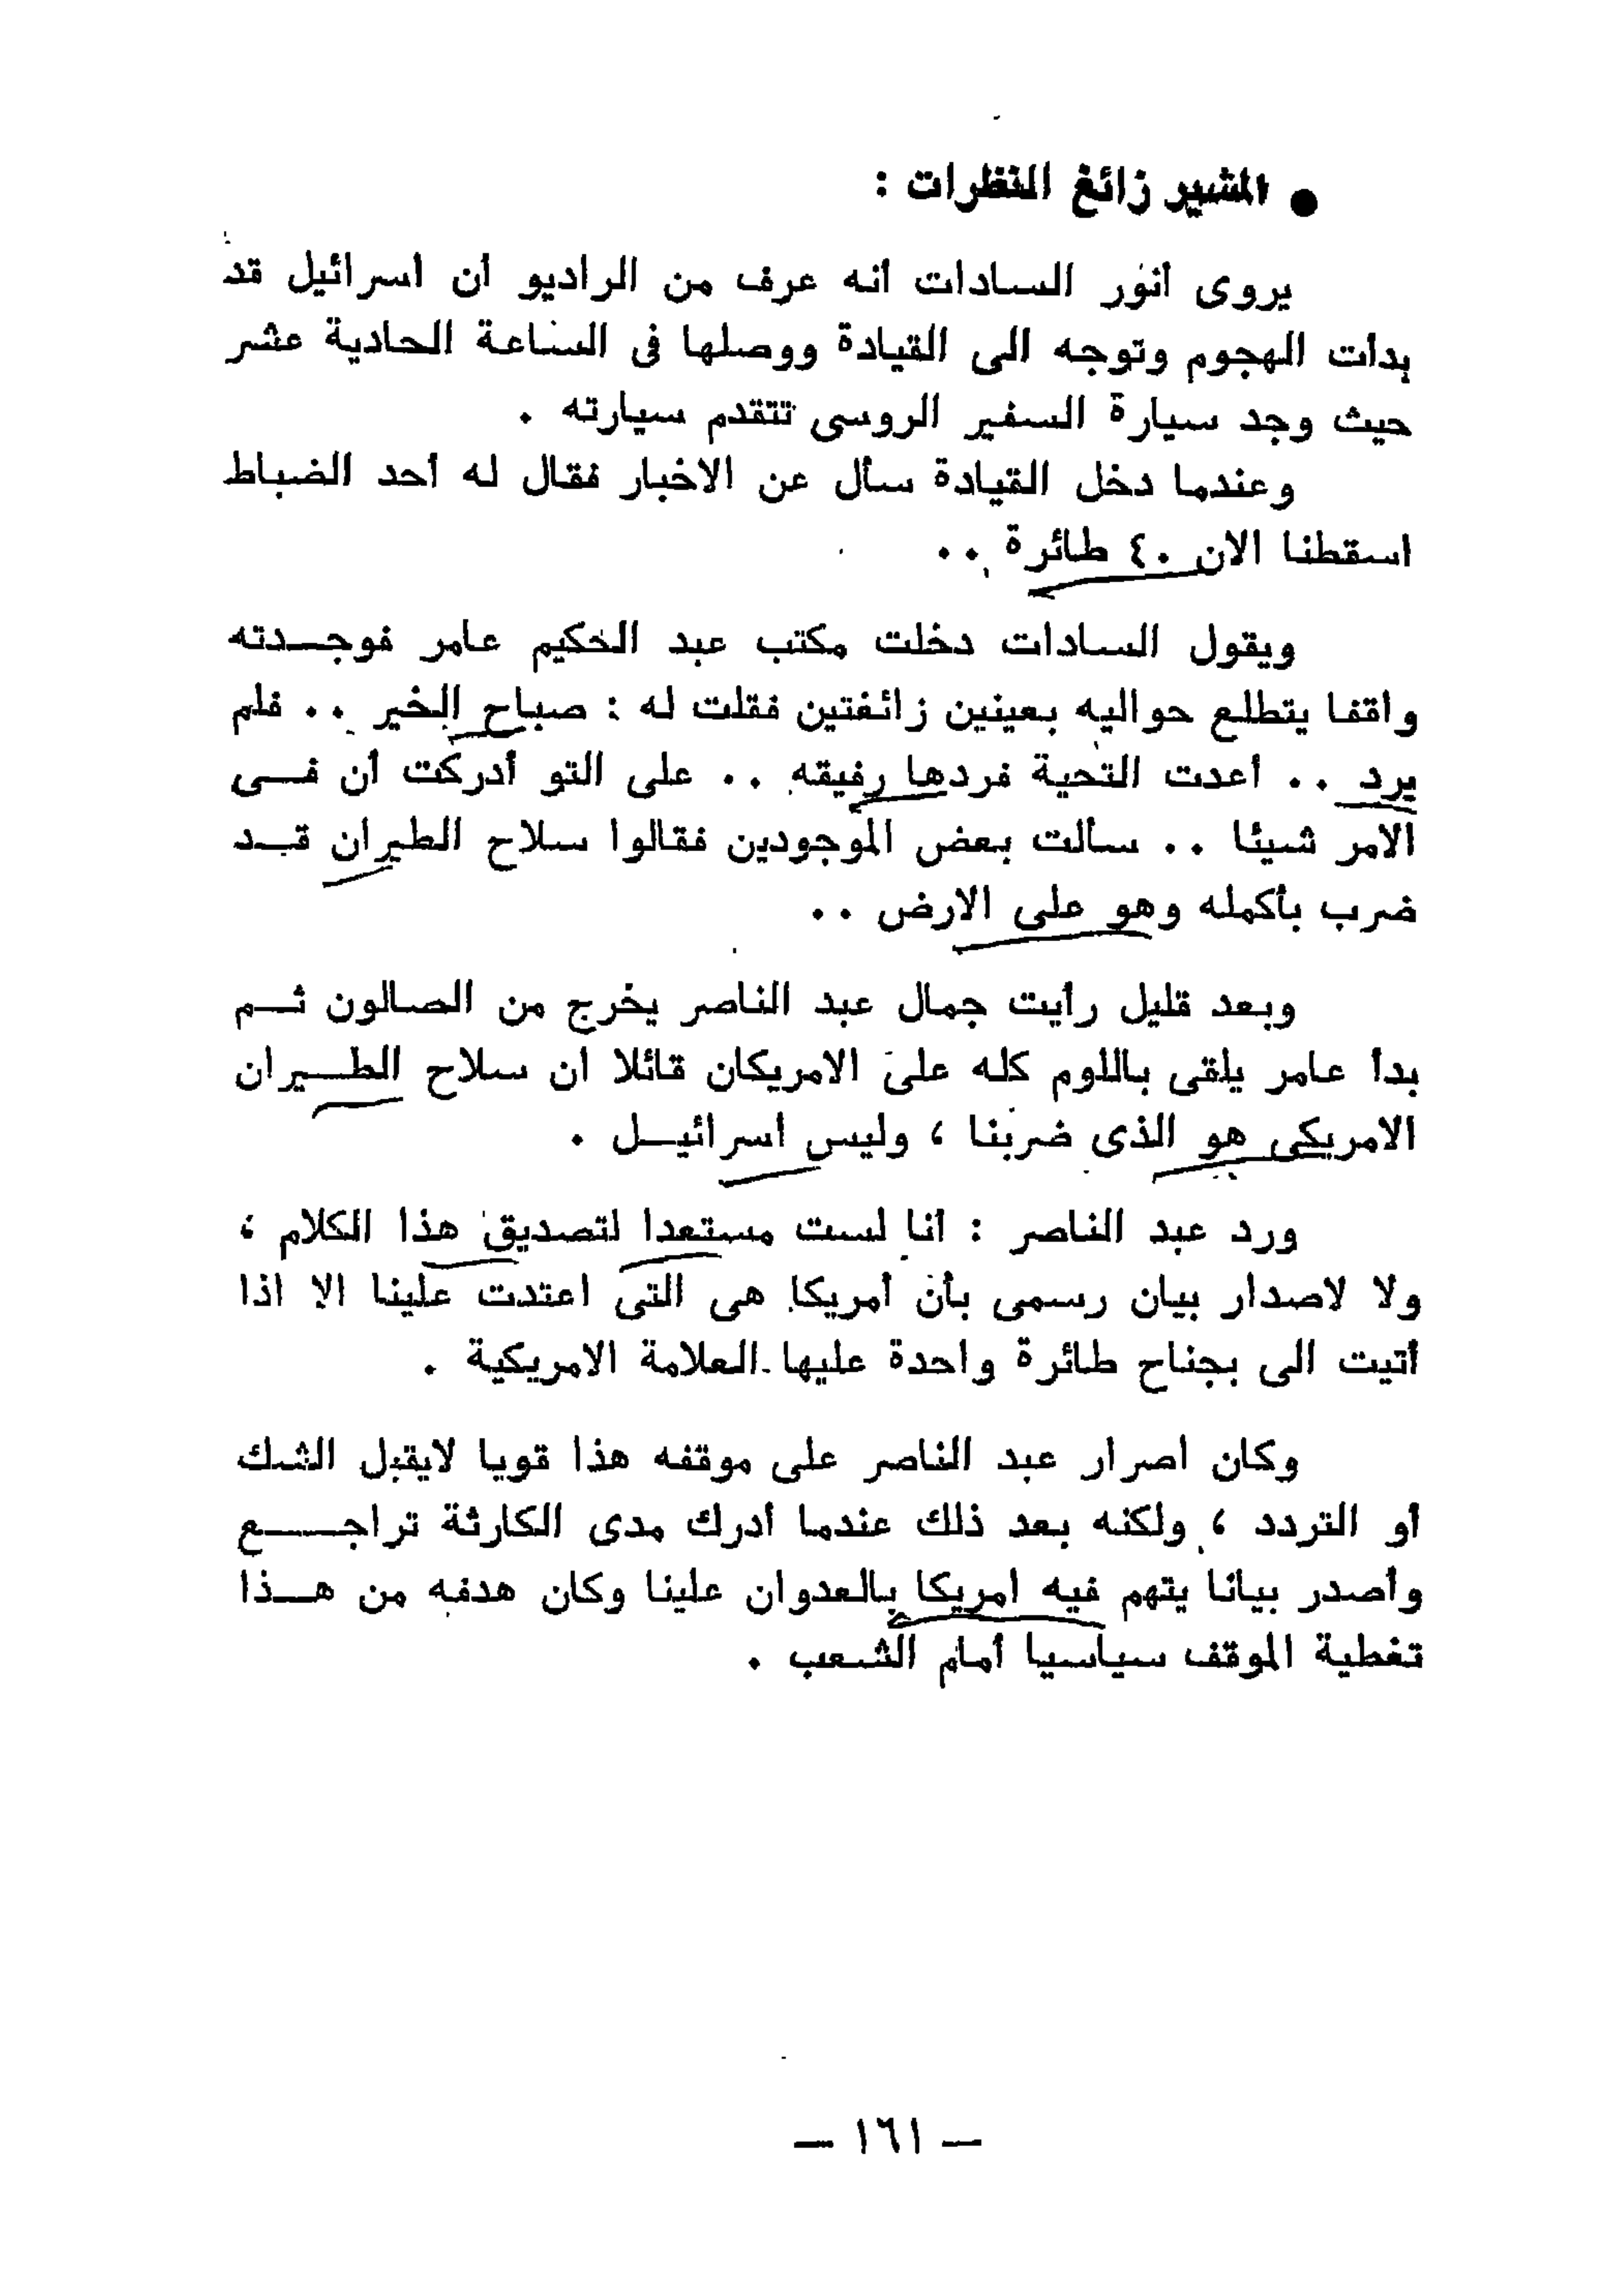 ● المشير زائغ النظرات :
يروى أنور السادات أنه عرف من الراديو أن اسرائيل قد
بدأت الهجوم وتوجه الى القيادة ووصلها فى الساعة الحادية عشر
حيث وجد سيارة السفير الروسى تتقدم سيارته .
وعندما دخل القيادة سأل عن الاخبار فقال له أحد الضباط
اسقطنا الان ٤٠ طائرة ..
ويقول السادات دخلت مكتب عبد الحكيم عامر فوجـدته
واقفا يتطلع حواليه بعينين زائغتين فقلت له : صباح الخير .. فلم
يرد .. أعدت التحية فردها رفيقه .. على التو أدركت أن فـى
الامر شيئا .. سألت بعض الموجودين فقالوا سلاح الطيران قـد
ضرب بأكمله وهو على الارض ..
وبعد قليل رأيت جمال عبد الناصر يخرج من الصالون ثـم
بدأ عامر يلقى باللوم كله على الامريكان قائلا ان سلاح الطـيران
الامريكى هو الذى ضربنا ، وليس اسرائيـل .
ورد عبد الناصر : أنا لست مستعدا لتصديق هذا الكلام ،
ولا لاصدار بيان رسمى بأن أمريكا هى التى اعتدت علينا الا اذا
أتيت الى بجناح طائرة واحدة عليها العلامة الامريكية .
وكان اصرار عبد الناصر على موقفه هذا قويا لايقبل الشك
أو التردد ، ولكنه بعد ذلك عندما أدرك مدى الكارثة تراجـــع
وأصدر بيانا يتهم فيه امريكا بالعدوان علينا وكان هدفه من هـذا
تغطية الموقف سياسيا أمام الشعب .
— ١٦١ —